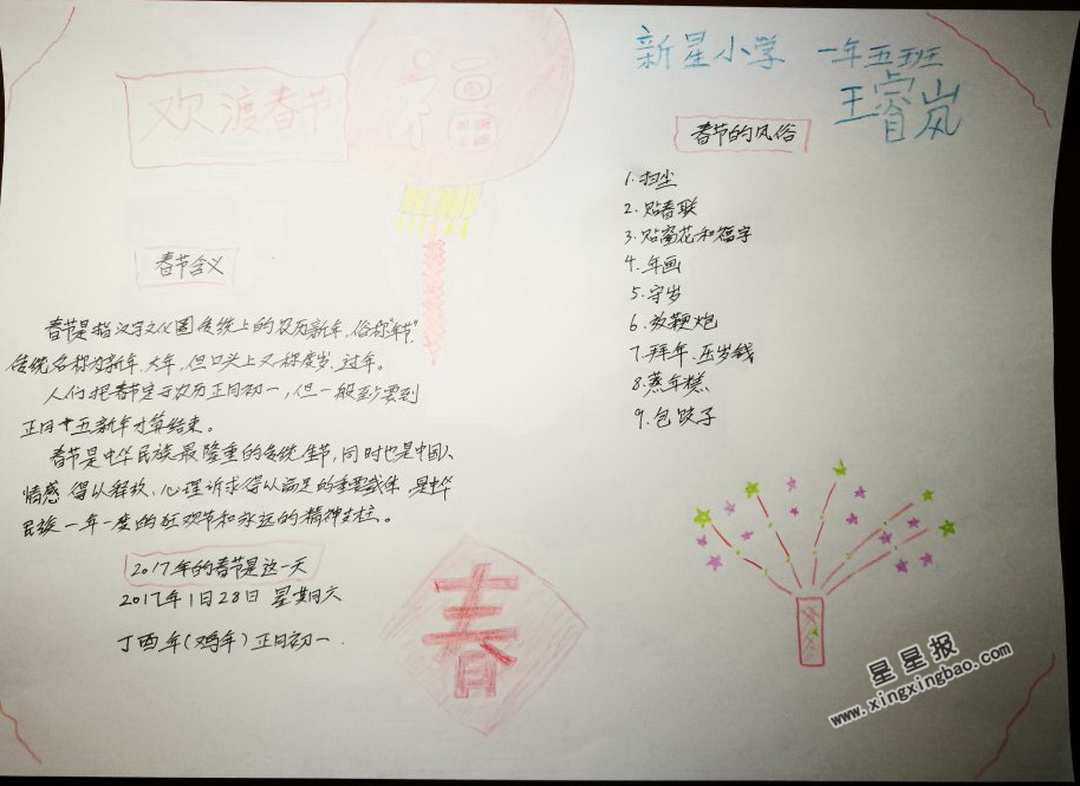 欢渡春节
福
春节含义
春节是指汉字文化圈传统上的农历新年，俗称"年节"，
传统名称为新年、大年，但口头上又称度岁、过年。
人们把春节定于农历正月初一，但一般到要到
正月十五新年才算结束。
春节是中华民族最隆重的传统佳节，同时也是中国人
情感得以释放、心理诉求得以满足的重要载体，是中华
民族一年一度的狂欢节和永远的精神支柱。
2017年的春节是这一天
2017年1日28日 星期六
丁酉年(鸡年)正月初一.
春
新星小学 一年五班
王睿岚
春节的风俗
1.扫尘
2.贴春联
3.贴窗花和福字
4.年画
5.守岁
6.放鞭炮
7.拜年、压岁钱
8.蒸年糕
9.包饺子
星星报
www.xingxingbao.com